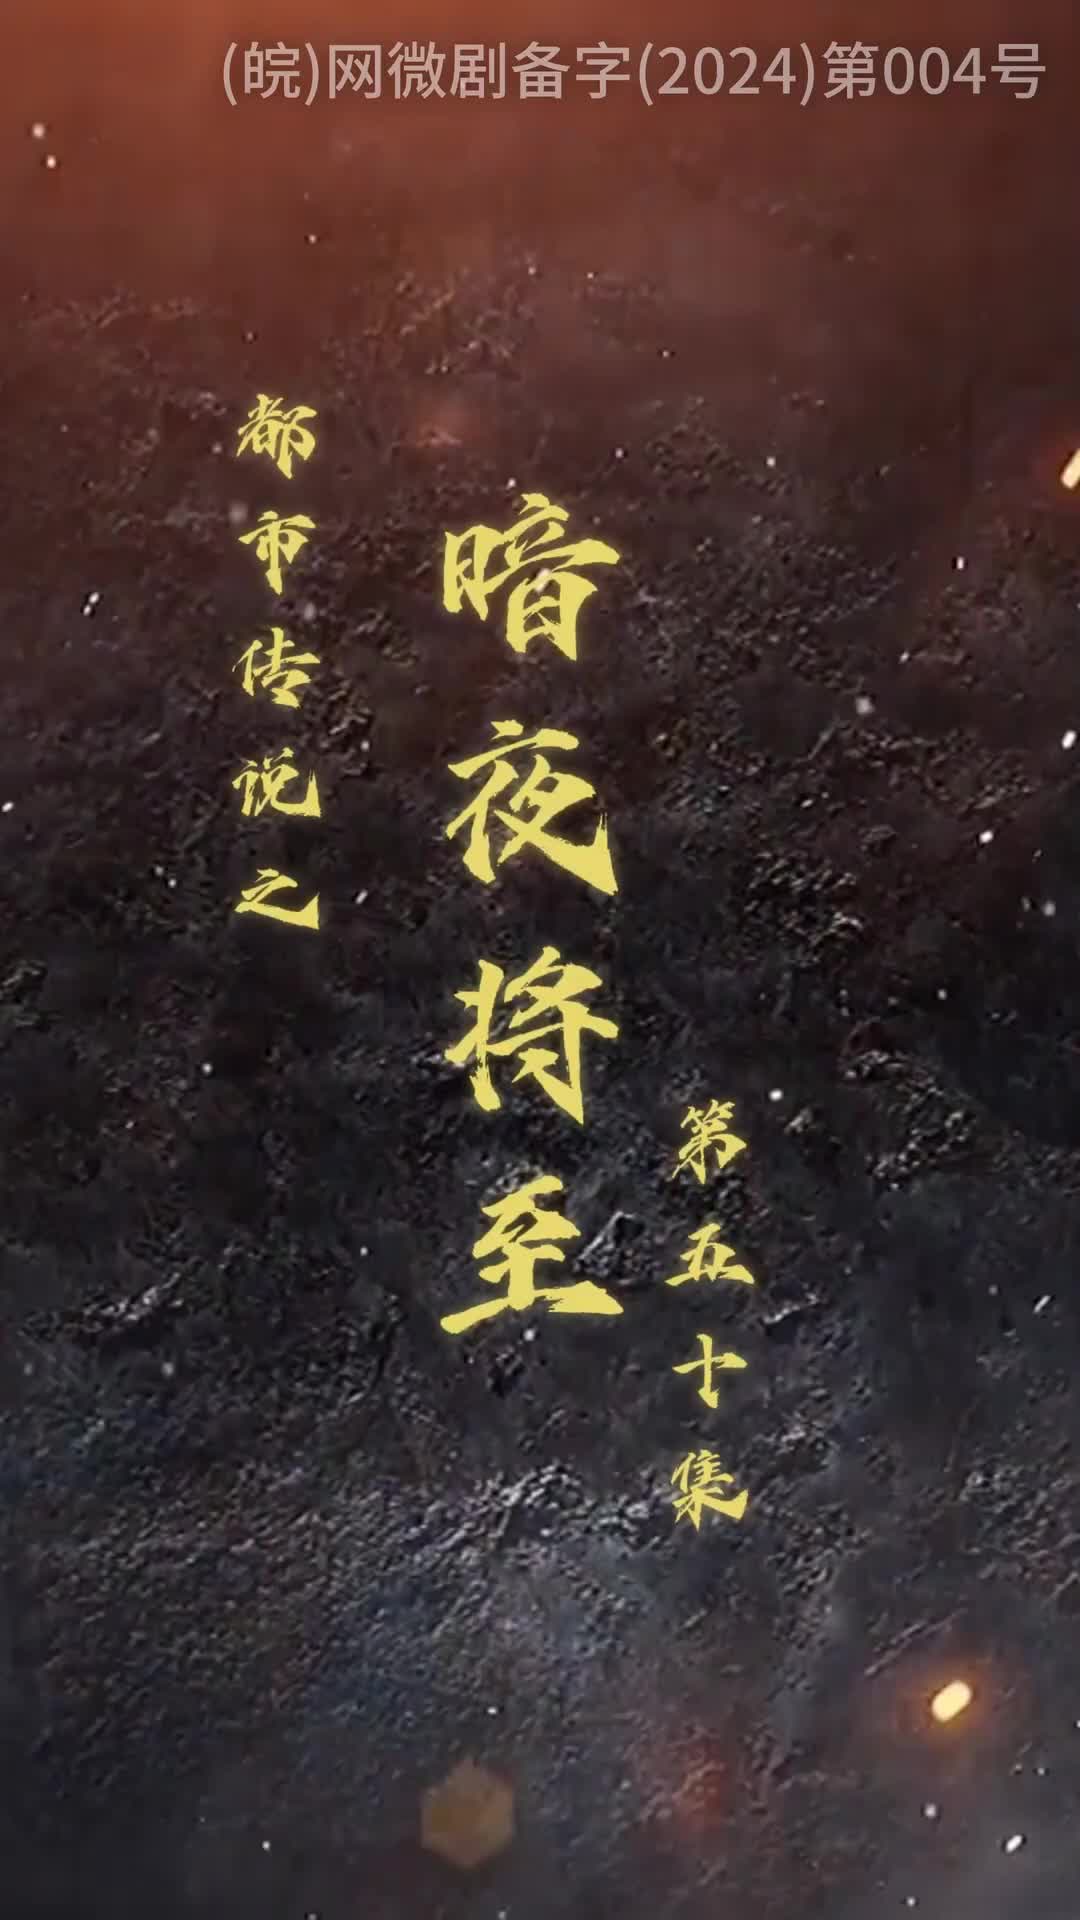 (皖)网微剧备字(2024)第004号
都市传说之
暗夜将至
第五十集